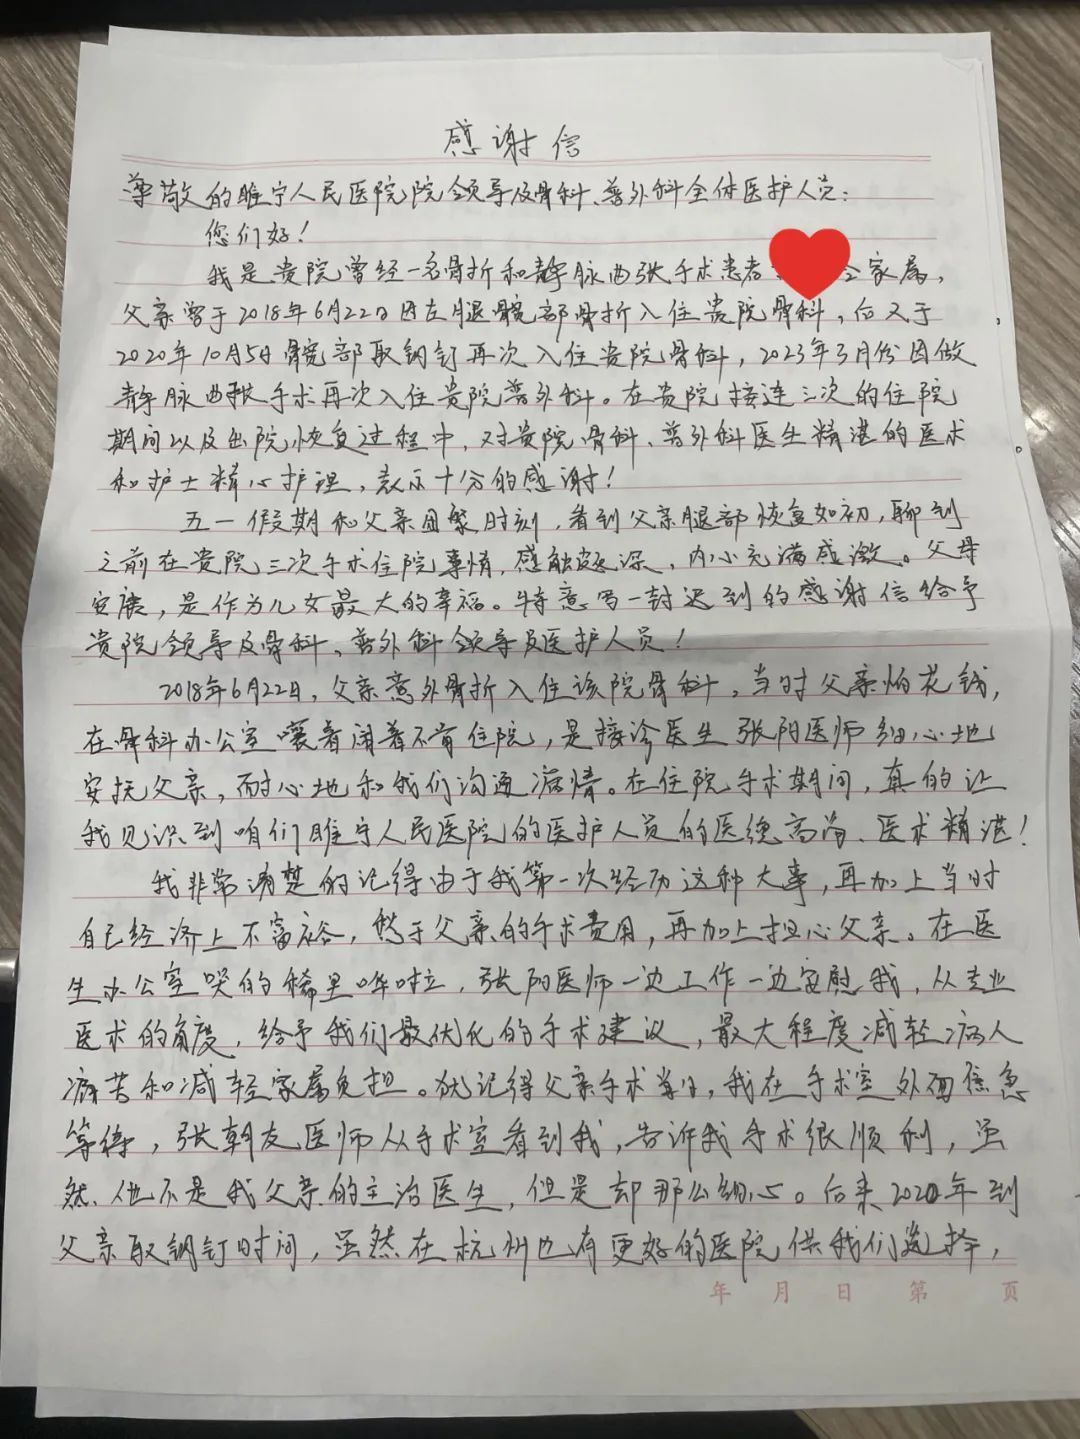 感谢信
尊敬的睢宁人民医院院领导及骨科、普外科全体医护人员：
您们好！
我是贵院曾经一名骨折和静脉曲张手术患者家属，
父亲曾于2018年6月22日因左腿髋部骨折入住贵院骨科，后又于
2020年10月5日髋部取钢钉再次入住贵院骨科，2023年3月份因做
静脉曲张手术再次入住贵院普外科。在贵院接连三次的住院
期间以及出院恢复过程中，对贵院骨科、普外科医生精湛的医术
和护士精心护理，表示十分的感谢！
五一假期和父亲团聚时刻，看到父亲腿部恢复如初，聊到
之前在贵院三次手术住院事情，感触颇深，内心充满感激。父母
安康，是作为儿女最大的幸福。特意写一封迟到的感谢信给予
贵院领导及骨科、普外科领导及医护人员！
2018年6月22日，父亲意外骨折入住该院骨科，当时父亲怕花钱，
在骨科办公室嚷着闹着不肯住院，是接诊医生张阳医师细心地
安抚父亲，耐心地和我们沟通病情。在住院手术期间，真的让
我见识到咱们睢宁人民医院的医护人员的医德高尚、医术精湛！
我非常清楚的记得由于我第一次经历这种大事，再加上当时
自己经济上不富裕，愁于父亲的手术费用，再加上担心父亲。在医
生办公室哭的稀里哗啦，张阳医师一边工作一边安慰我，从专业
医术的角度，给予我们最优化的手术建议，最大程度减轻病人
病苦和减轻家属负担。犹记得父亲手术当日，我在手术室外面焦急
等待，张朝友医师从手术室看到我，告诉我手术很顺利，虽
然他不是我父亲的主治医生，但是却那么细心。后来2020年到
父亲取钢钉时间，虽然在杭州也有更好的医院供我们选择，
年 月 日 第 页